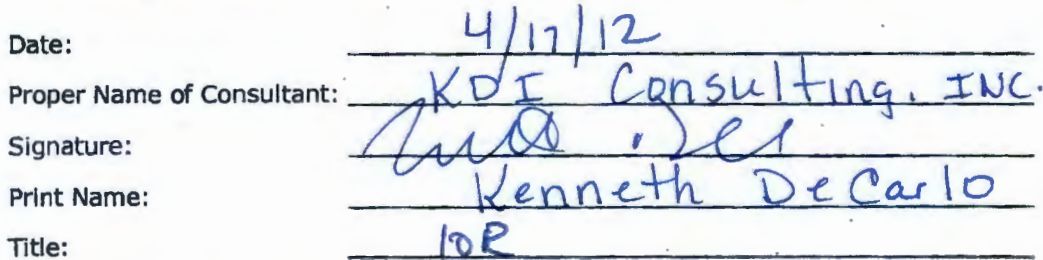 Date: 4/17/12
Proper Name of Consultant: KDI Consulting. INC.
Signature:
Print Name: Kenneth DeCarlo
Title: IOR